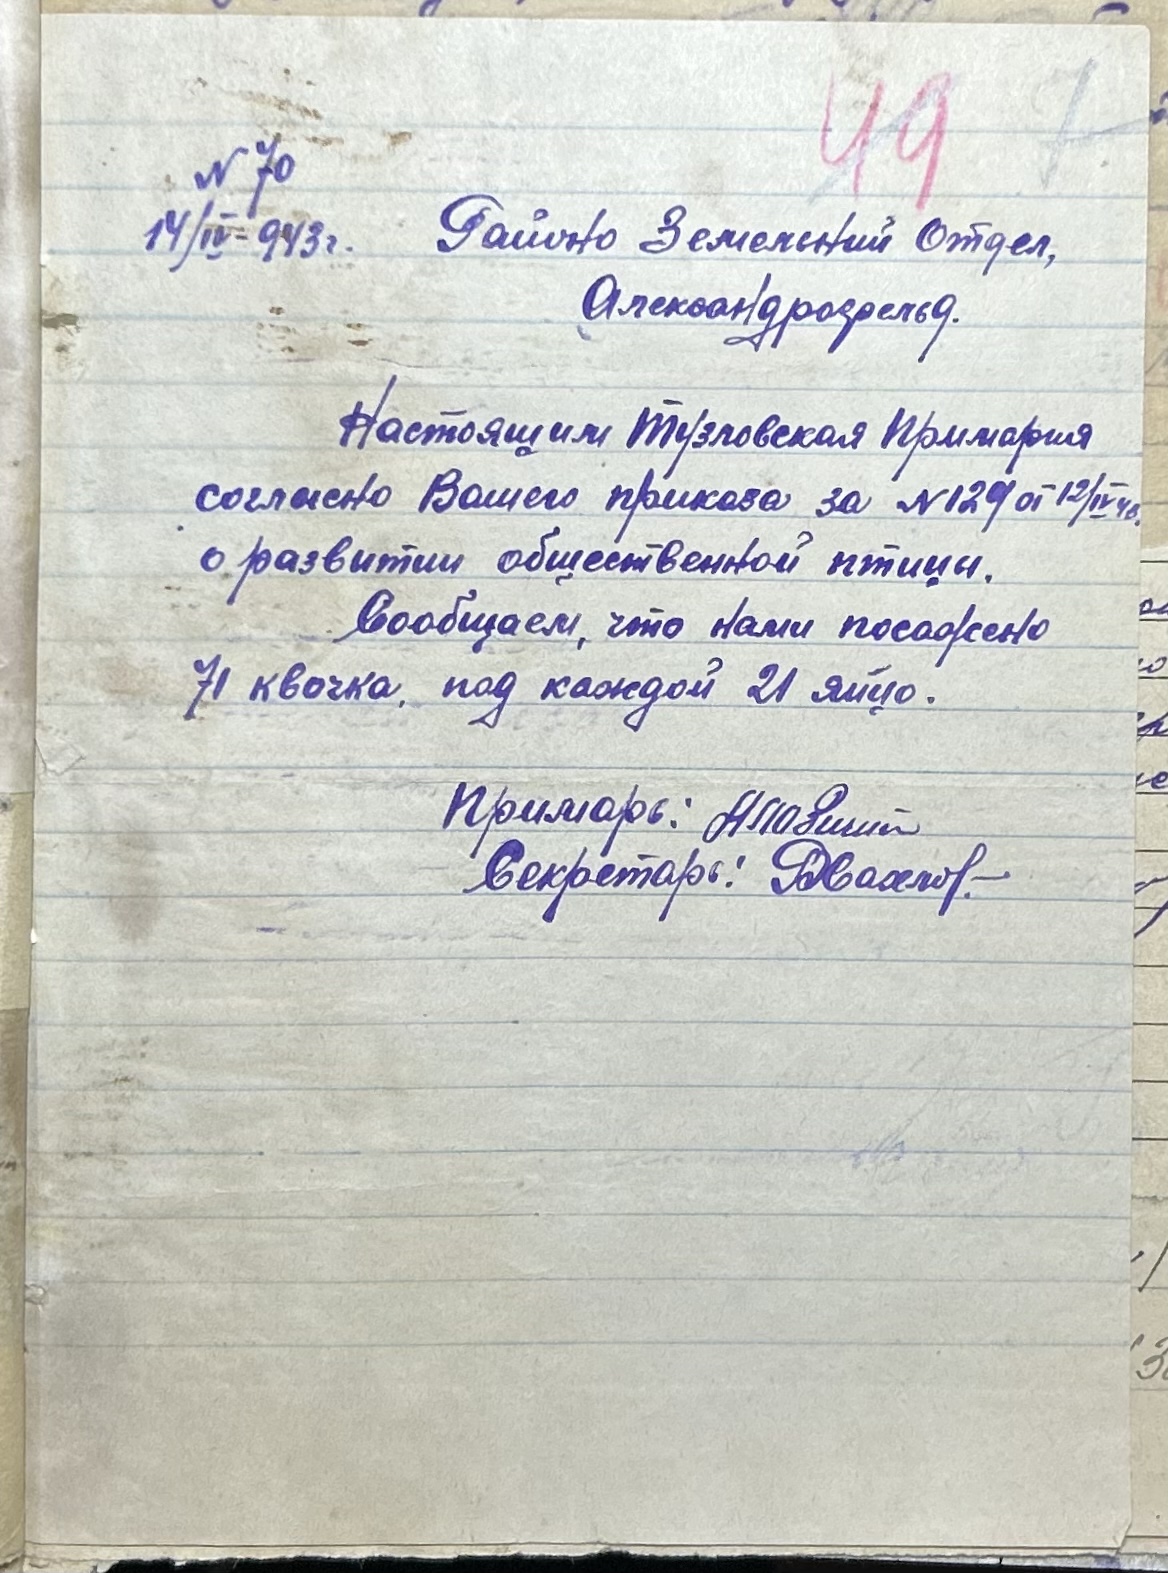 49
N 70
14/IV-943г.
Районо Земельний Отдел,
Александрофельд.
Настоящим Тузловская Примария
согласно Вашего приказа за N 129 от 12/IV 43.
о развитии общественной птицы.
Сообщаем, что нами посаджено
71 квочка, под каждой 21 яйцо.
Примарь:
Секретарь: